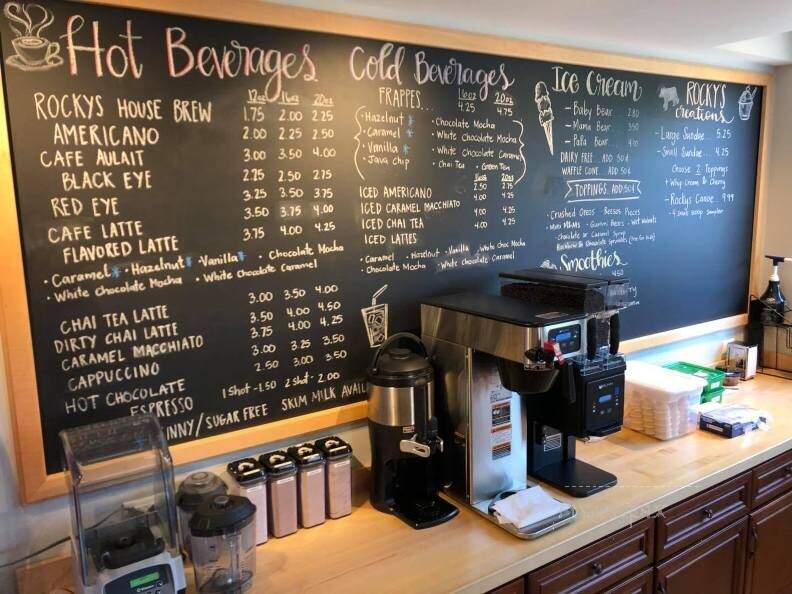 Hot Beverages
12oz 16oz 20oz
ROCKYS HOUSE BREW 1.75 2.00 2.25
AMERICANO 2.00 2.25 2.50
CAFE AULAIT 3.00 3.50 4.00
BLACK EYE 2.25 2.50 2.75
RED EYE 3.25 3.50 3.75
CAFE LATTE 3.50 3.75 4.00
FLAVORED LATTE 3.75 4.00 4.25
• Caramel • Hazelnut • Vanilla • Chocolate Mocha
• White Chocolate Mocha • White Chocolate Caramel
CHAI TEA LATTE 3.00 3.50 4.00
DIRTY CHAI LATTE 3.50 4.00 4.50
CARAMEL MACCHIATO 3.75 4.00 4.25
CAPPUCCINO 3.00 3.25 3.50
HOT CHOCOLATE 2.50 3.00 3.50
ESPRESSO 1 Shot-1.50 2 Shot-2.00
NNY/SUGAR FREE SKIM MILK AVAIL
Cold Beverages
FRAPPES... 16oz 4.25 20oz 4.75
• Hazelnut • Chocolate Mocha
• Caramel • White Chocolate Mocha
• Vanilla • White Chocolate Caramel
• Java Chip • Chai Tea • Green Tea
16oz 20oz
ICED AMERICANO 2.50 2.75
ICED CARAMEL MACCHIATO 4.00 4.25
ICED CHAI TEA 4.00 4.25
ICED LATTES 4.00 4.25
• Caramel • Hazelnut • Vanilla • White Choc Mocha
• Chocolate Mocha • White Chocolate Caramel
Ice Cream
- Baby Bear 2.80
- Mama Bear 3.50
- Papa Bear 4.10
DAIRY FREE ADD 50¢
WAFFLE CONE ADD 50¢
TOPPINGS ADD 50¢
• Crushed Oreos • Reeses Pieces
• Mini M&Ms • Gummi Bears • Wet Walnuts
• Chocolate or Caramel Syrup
Smoothies
4.50
ROCKYS
Creations
- Large Sundae... 5.25
- Small Sundae... 4.25
Choose 2 Toppings
+ Whip Cream & Cherry
- Rockys Canoe... 9.99
4 small scoop sampler